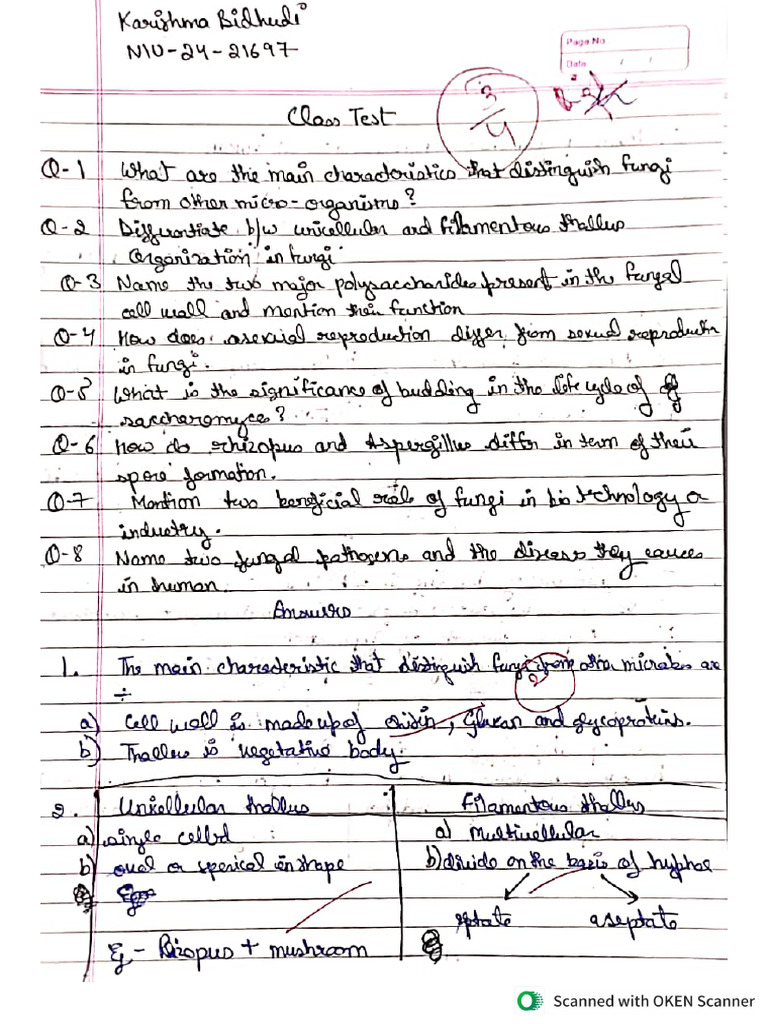 Karishma Bidhudi
NIU-24-21697
Page No
Date / /
3/4
Class Test
Q-1 What are the main characteristics that distinguish fungi
from other micro-organisms?
Q-2 Differentiate b/w unicellular and filamentous thallus
organization in fungi
Q-3 Name the two major polysaccharides present in the fungal
cell wall and mention their function
Q-4 How does asexual reproduction differ from sexual reproduction
in fungi.
Q-5 What is the significance of budding in the life cycle of
saccharomyces?
Q-6 How do rhizopus and Aspergillus differ in term of their
spore formation.
Q-7 Mention two beneficial role of fungi in biotechnology or
industry.
Q-8 Name two fungal pathogens and the disease they causes
in human.
Answers
1. The main characteristic that distinguish fungi from other microbes are
÷
2
a) Cell wall is made up of chitin, Glucan and glycoproteins.
b) Thallus is vegetative body.
2. Unicellular thallus Filamentous thallus
a) single celled a) multicellular
b) oval or sperical in shape b) divide on the basis of hyphae
septate aseptate
Eg - Rizopus + mushroom
Scanned with OKEN Scanner